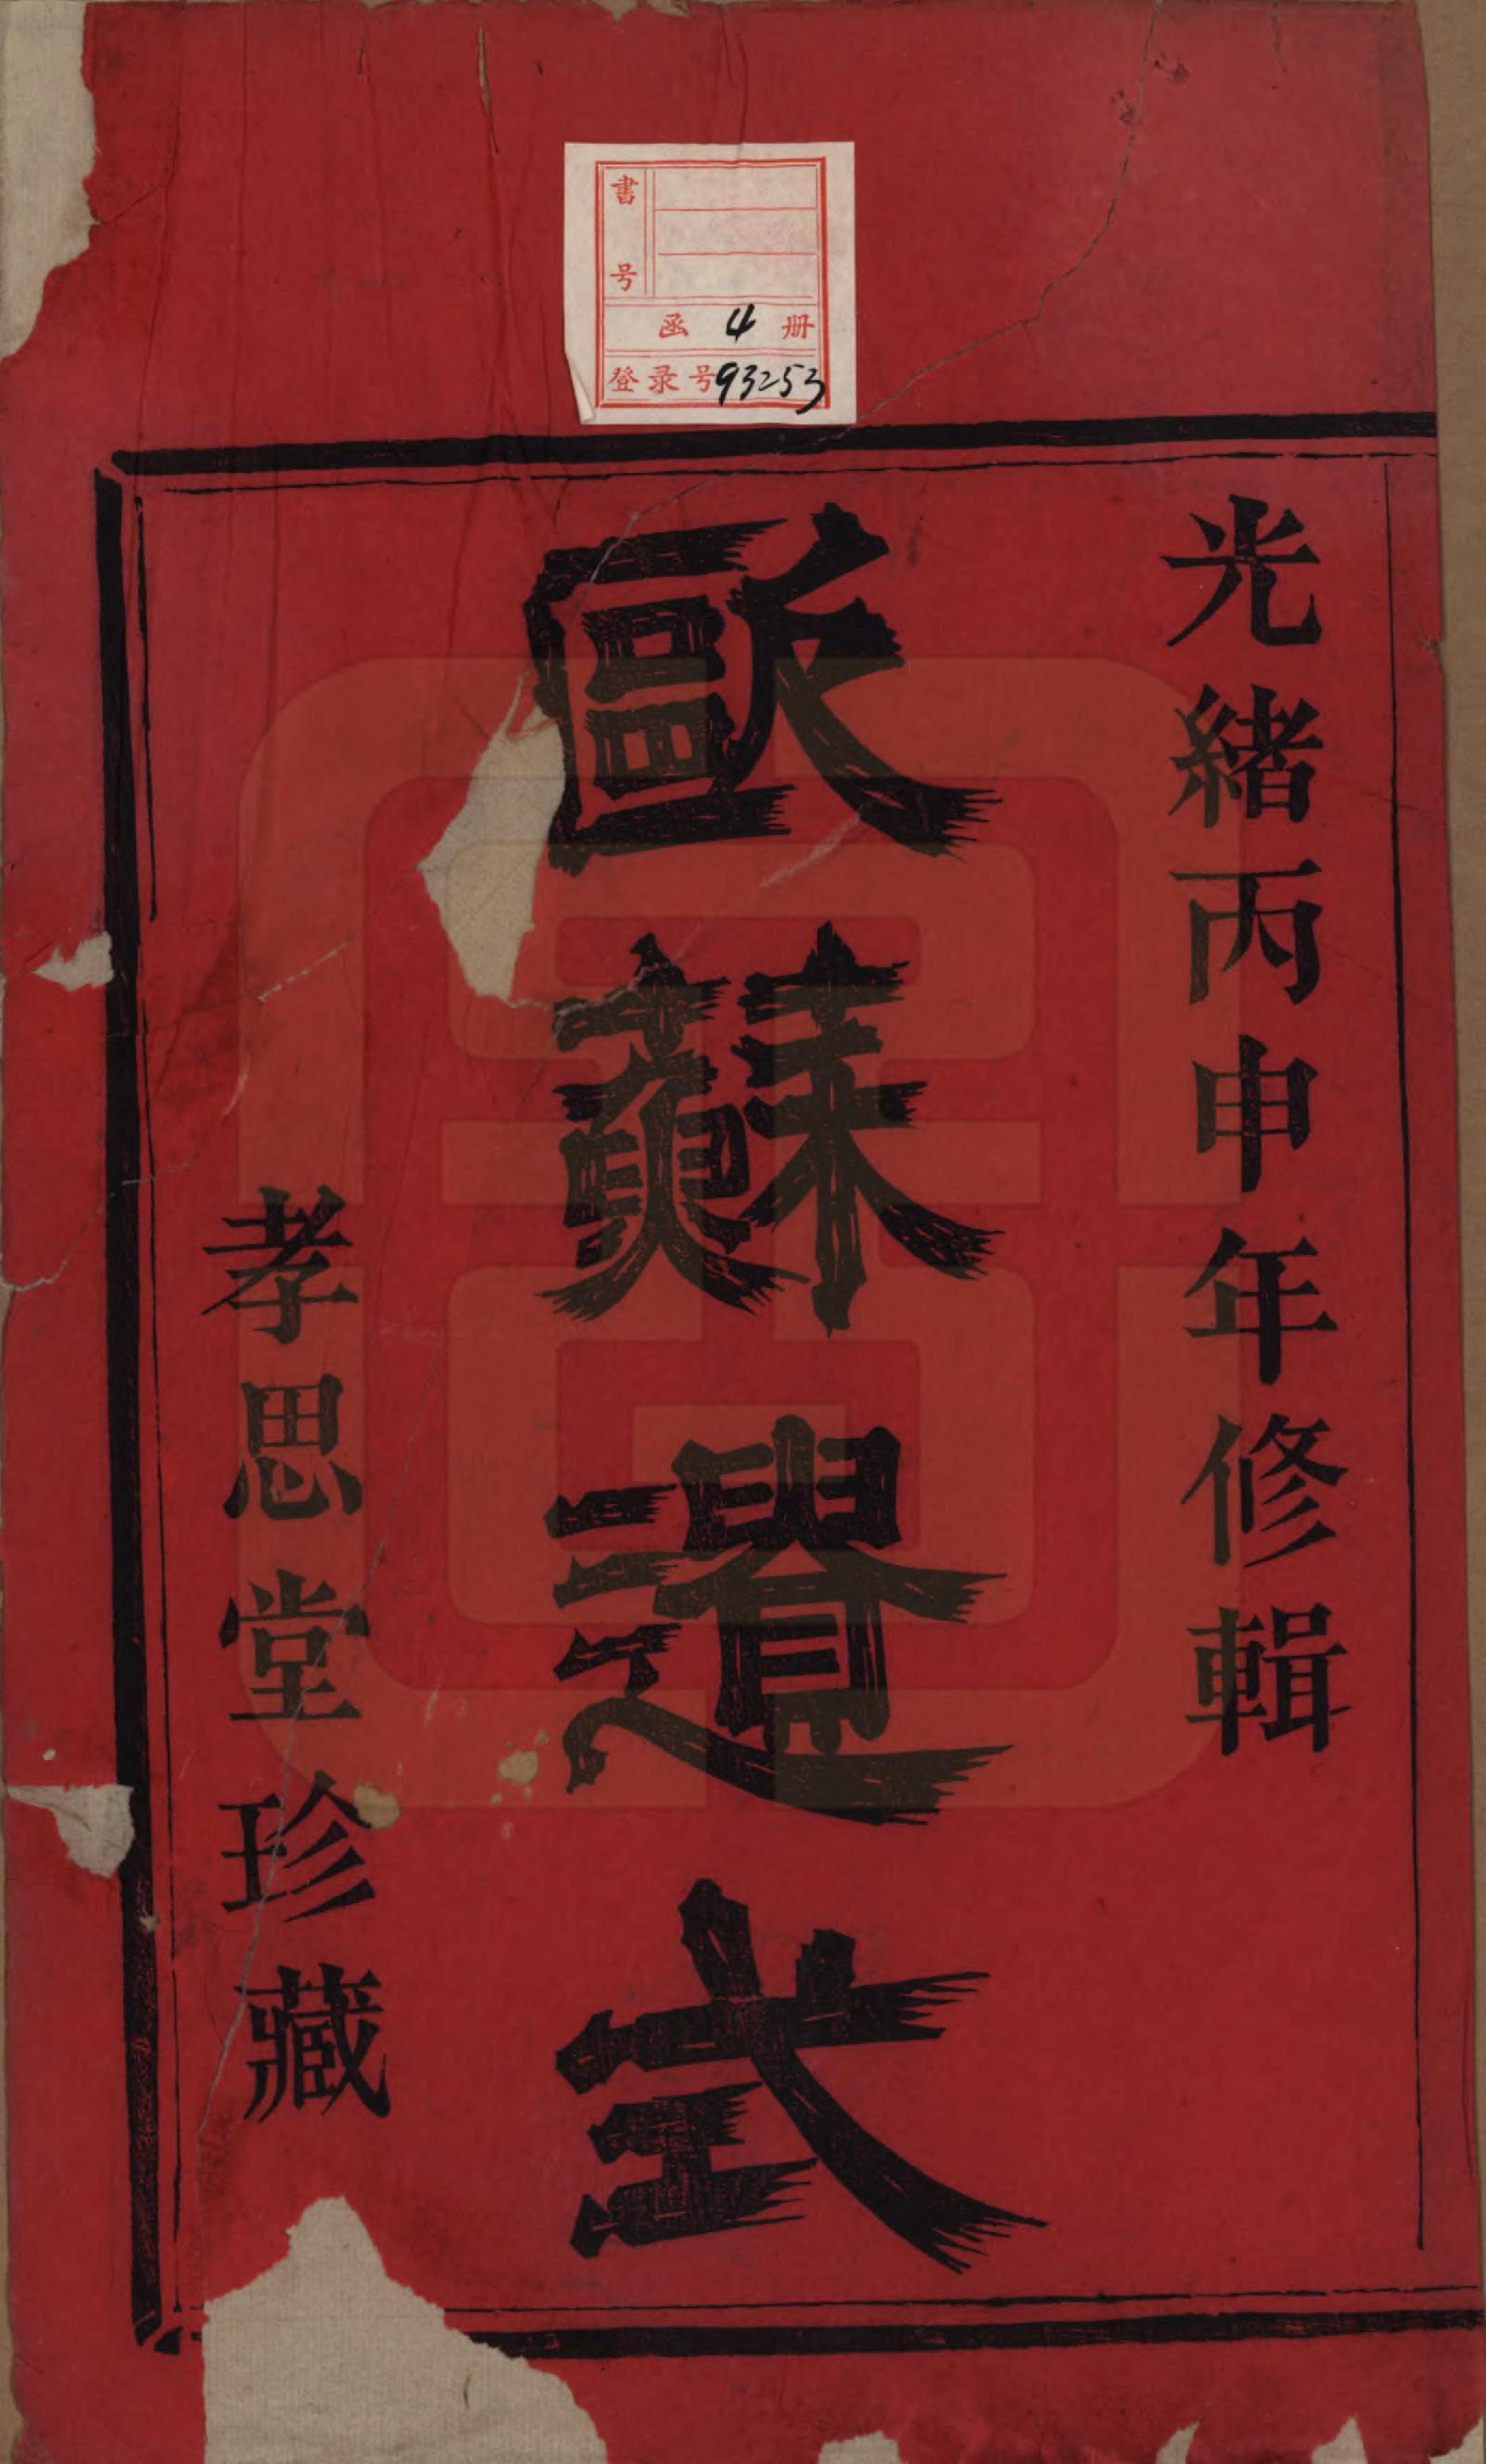 書号
函 4 册
登录号93253
光緒丙申年修輯
歐蘇遺式
孝思堂珍藏